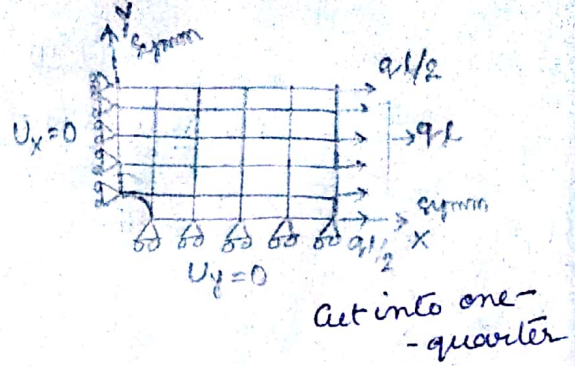 Y
Symm
qL/2
Ux=0
→qL
Symm
X
qL/2
Uy=0
Cut into one-
-quarter